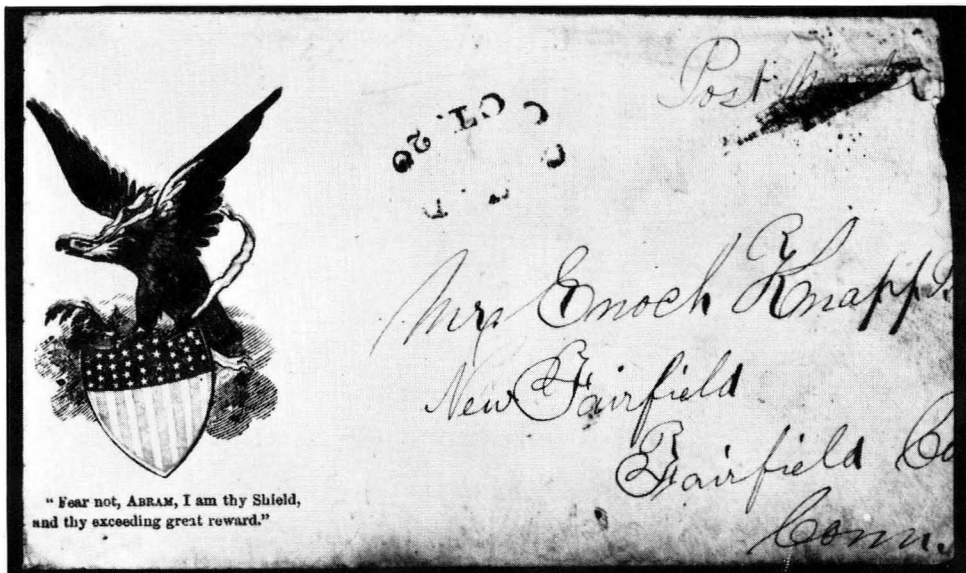 Post
OCT. 20
Mrs Enoch Knapp
New Fairfield
Fairfield Co
Conn.
"Fear not, ABRAM, I am thy Shield,
and thy exceeding great reward."